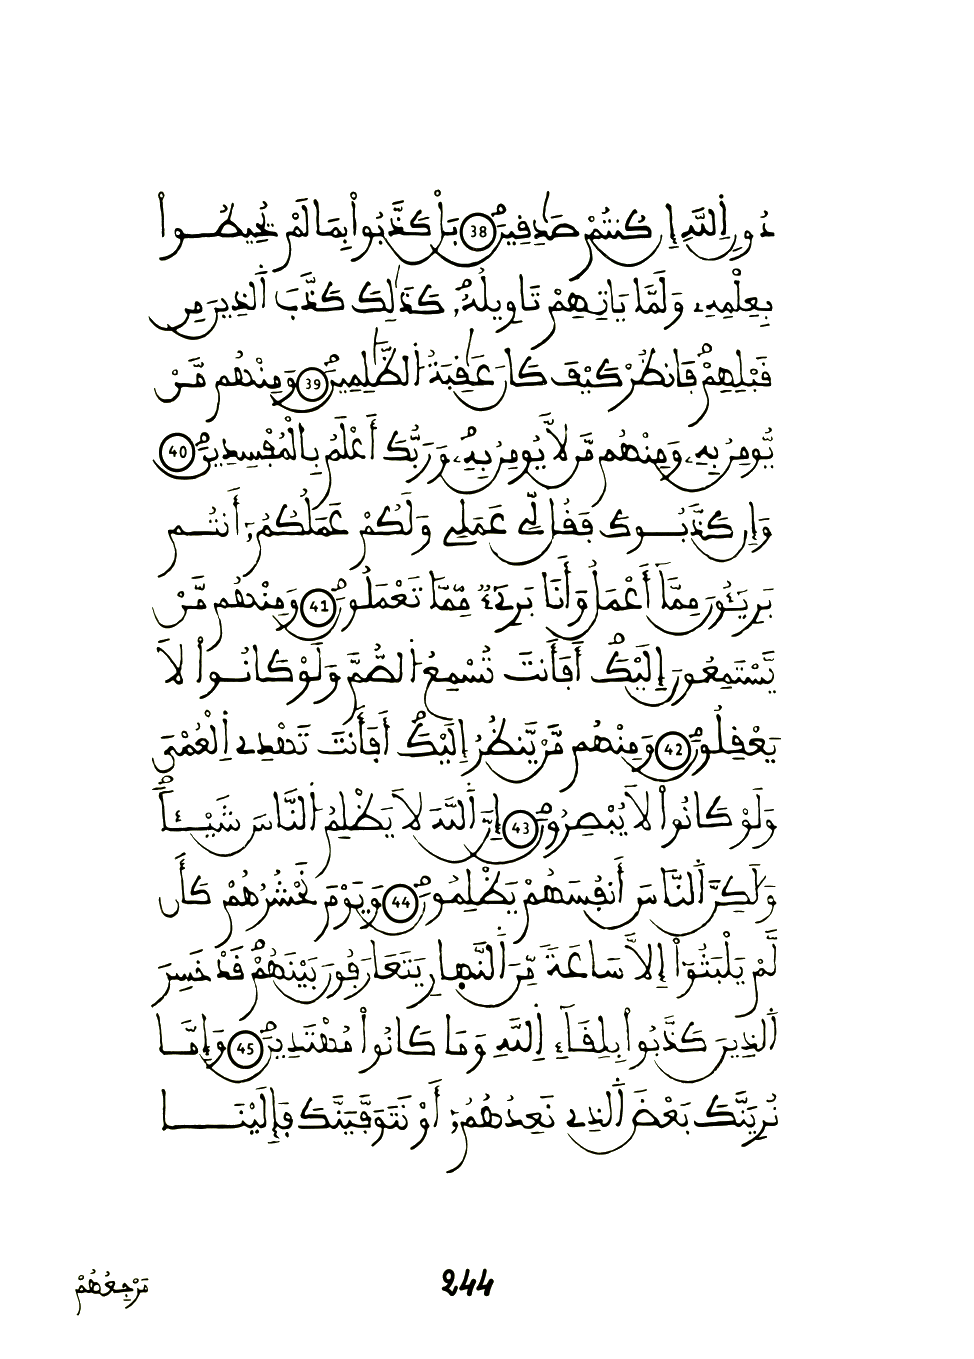 دُونِ اِ۬للَّهِ إِن كُنتُمْ صَٰدِقِينَۖ 38 بَلْ كَذَّبُواْ بِمَا لَمْ يُحِيطُواْ
بِعِلْمِهِۦ وَلَمَّا يَاتِهِمْ تَاوِيلُهُۥۖ كَذَٰلِكَ كَذَّبَ اَ۬لذِينَ مِن
قَبْلِهِمْۖ فَانظُرْ كَيْفَ كَانَ عَٰقِبَةُ اُ۬لظَّٰلِمِينَۖ 39 وَمِنْهُم مَّنْ
يُّومِنُ بِهِۦ وَمِنْهُم مَّن لَّا يُومِنُ بِهِۦۖ وَرَبُّكَ أَعْلَمُ بِالْمُفْسِدِينَۖ 40
وَإِن كَذَّبُوكَ فَقُل لِّے عَمَلِے وَلَكُمْ عَمَلُكُمُۥٓ أَنتُم
بَرِيٓـُٔونَ مِمَّآ أَعْمَلُ وَأَنَا بَرِےٓءٞ مِّمَّا تَعْمَلُونَۖ 41 وَمِنْهُم مَّنْ
يَّسْتَمِعُونَ إِلَيْكَۖ أَفَأَنتَ تُسْمِعُ اُ۬لصُّمَّ وَلَوْ كَانُواْ لَا
يَعْقِلُونَۖ 42 وَمِنْهُم مَّنْ يَّنظُرُ إِلَيْكَۖ أَفَأَنتَ تَهْدِے اِ۬لْعُمْىَ
وَلَوْ كَانُواْ لَا يُبْصِرُونَۖ 43 إِنَّ اَ۬للَّهَ لَا يَظْلِمُ اُ۬لنَّاسَ شَيْـٔاٗۖ
وَلَٰكِنَّ اَ۬لنَّاسَ أَنفُسَهُمْ يَظْلِمُونَۖ 44 وَيَوْمَ نَحْشُرُهُمْ كَأَن
لَّمْ يَلْبَثُوٓاْ إِلَّا سَاعَةٗ مِّنَ اَ۬لنَّهارِ يَتَعَارَفُونَ بَيْنَهُمْۖ قَدْ خَسِرَ
اَ۬لذِينَ كَذَّبُواْ بِلِقَآءِ اِ۬للَّهِ وَمَا كَانُواْ مُهْتَدِينَۖ 45 وَإِمَّا
نُرِيَنَّكَ بَعْضَ اَ۬لذِے نَعِدُهُمُۥٓ أَوْ نَتَوَفَّيَنَّكَ فَإِلَيْنَا
244
مَرْجِعُهُمْ